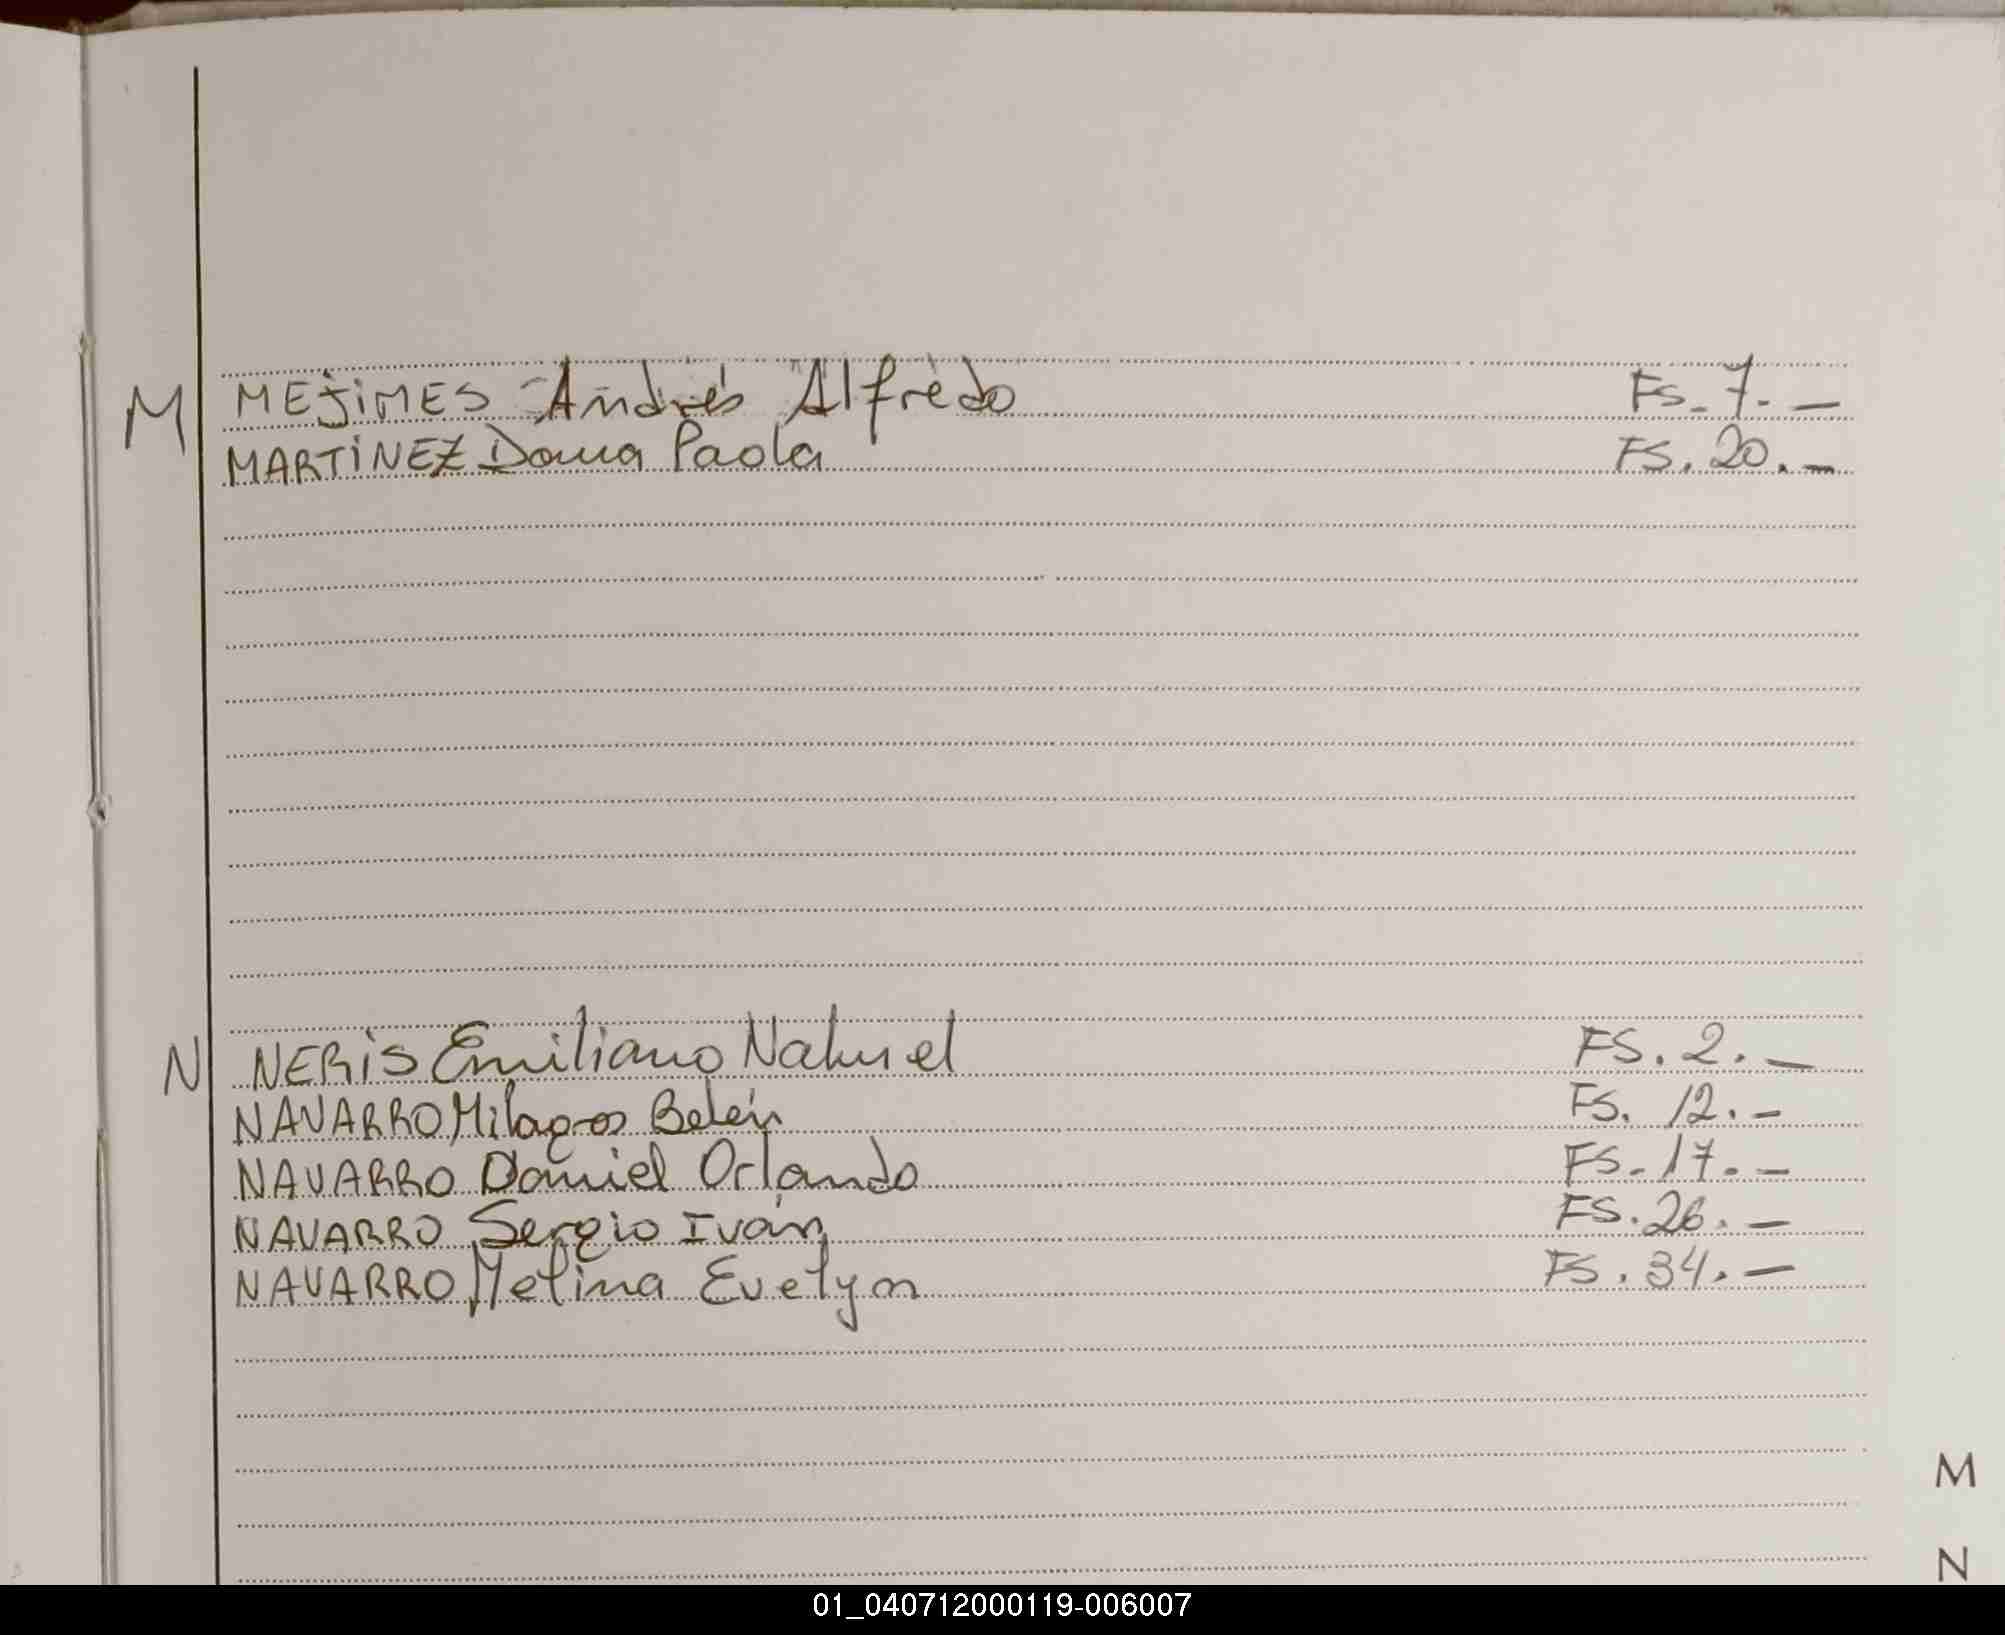 M MEJIMES Andrés Alfredo FS. 7. —
MARTINEZ Daina Paola FS. 20. —
N NERIS Emiliano Nahuel FS. 2. —
NAVARRO Milagros Belén FS. 12. —
NAVARRO Daniel Orlando FS. 17. —
NAVARRO Sergio Iván FS. 26. —
NAVARRO Melina Evelyn FS. 34. —
M
N
01_040712000119-006007